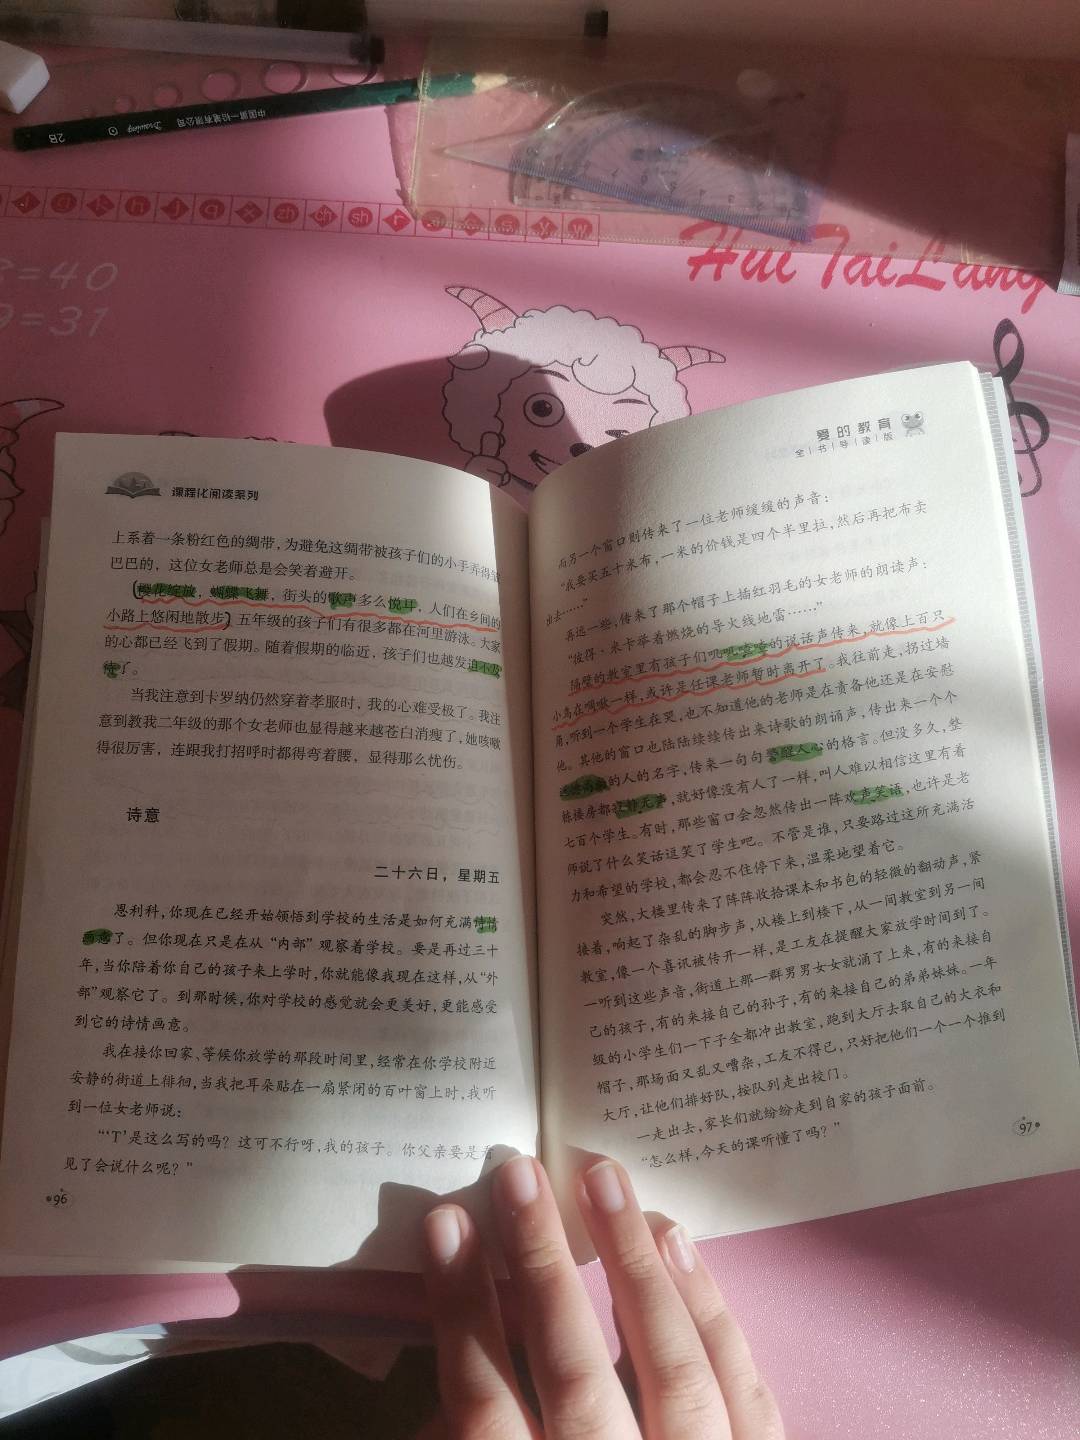 中国第一铅笔有限公司
Drawing
2B
d k h j q x zh ch sh r
y w
Hui TaiLang
=40
9=31
课程化阅读系列
上系着一条粉红色的绸带，为避免这绸带被孩子们的小手弄得皱
巴巴的，这位女老师总是会笑着避开。
樱花绽放，蝴蝶飞舞，街头的歌声多么悦耳，人们在乡间的
小路上悠闲地散步。五年级的孩子们有很多都在河里游泳。大家
的心都已经飞到了假期。随着假期的临近，孩子们也越发迫不及
待了。
当我注意到卡罗纳仍然穿着孝服时，我的心难受极了。我注
意到教我二年级的那个女老师也显得越来越苍白消瘦了，她咳嗽
得很厉害，连跟我打招呼时都得弯着腰，显得那么忧伤。
诗意
二十六日，星期五
恩利科，你现在已经开始领悟到学校的生活是如何充满诗情
画意了。但你现在只是在从“内部”观察着学校。要是再过三十
年，当你陪着你自己的孩子来上学时，你就能像我现在这样，从“外
部”观察它了。到那时候，你对学校的感觉就会更美好，更能感受
到它的诗情画意。
我在接你回家、等候你放学的那段时间里，经常在你学校附近
安静的街道上徘徊，当我把耳朵贴在一扇紧闭的百叶窗上时，我听
到一位女老师说：
“‘T’是这么写的吗？这可不行呀，我的孩子。你父亲要是看
见了会说什么呢？”
96
爱的教育
全书导读版
而另一个窗口则传来了一位老师缓缓的声音：
“我要买五十米布，一米的价钱是四个半里拉，然后再把布卖
出去……”
再远一些，传来了那个帽子上插红羽毛的女老师的朗读声：
“彼得·米卡举着燃烧的导火线地雷……”
隔壁的教室里有孩子们叽叽喳喳的说话声传来，就像上百只
小鸟在啁啾一样，或许是任课老师暂时离开了。我往前走，拐过墙
角，听到一个学生在哭，也不知道他的老师是在责备他还是在安慰
他。其他的窗口也陆陆续续传出来诗歌的朗诵声，传出来一个个
的人的名字，传来一句句警醒人心的格言。但没多久，整
栋楼房都寂静无声，就好像没有人了一样，叫人难以相信这里有着
七百个学生。有时，那些窗口会忽然传出一阵欢声笑语，也许是老
师说了什么笑话逗笑了学生吧。不管是谁，只要路过这所充满活
力和希望的学校，都会忍不住停下来，温柔地望着它。
突然，大楼里传来了阵阵收拾课本和书包的轻微的翻动声，紧
接着，响起了杂乱的脚步声，从楼上到楼下，从一间教室到另一间
教室，像一个喜讯被传开一样，是工友在提醒大家放学时间到了。
一听到这些声音，街道上那一群男男女女就涌了上来，有的来接自
己的孩子，有的来接自己的孙子，有的来接自己的弟弟妹妹。一年
级的小学生们一下子全都冲出教室，跑到大厅去取自己的大衣和
帽子，那场面又乱又嘈杂，工友不得已，只好把他们一个一个推到
大厅，让他们排好队，按队列走出校门。
一走出去，家长们就纷纷走到自家的孩子面前。
“怎么样，今天的课听懂了吗？”
97